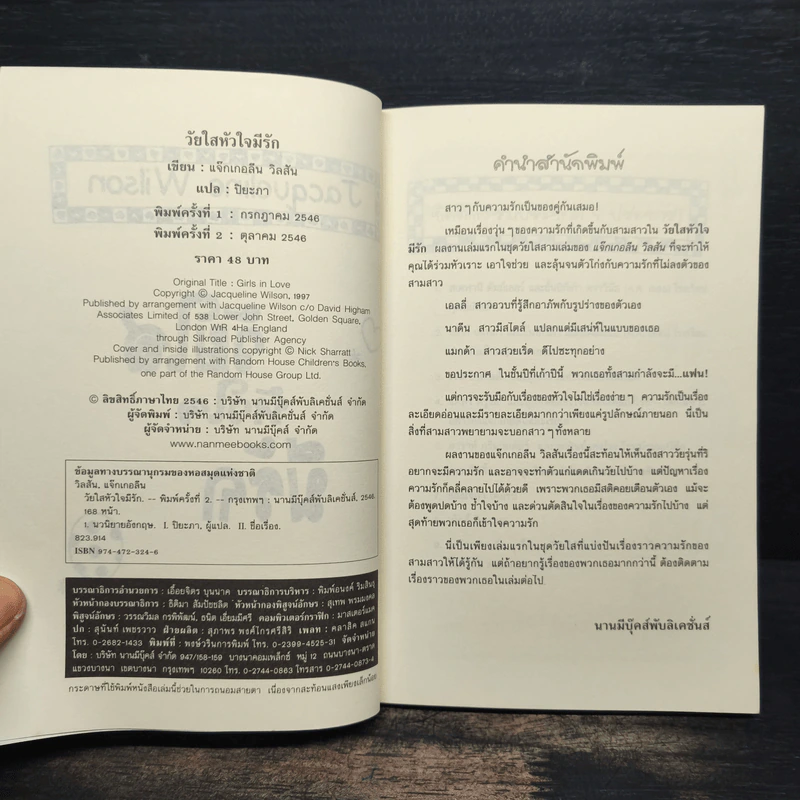 วัยใสหัวใจมีรัก
เขียน : แจ๊กเกอลีน วิลสัน
แปล : ปิยะภา
พิมพ์ครั้งที่ 1 : กรกฎาคม 2546
พิมพ์ครั้งที่ 2 : ตุลาคม 2546
ราคา 48 บาท
Original Title : Girls in Love
Copyright © Jacqueline Wilson, 1997
Published by arrangement with Jacqueline Wilson c/o David Higham
Associates Limited of 538 Lower John Street, Golden Square,
London W1R 4Ha England
through Silkroad Publisher Agency
Cover and inside illustrations copyright © Nick Sharratt
Published by arrangement with Random House Children's Books,
one part of the Random House Group Ltd.
© ลิขสิทธิ์ภาษาไทย 2546 : บริษัท นานมีบุ๊คส์พับลิเคชั่นส์ จำกัด
ผู้จัดพิมพ์ : บริษัท นานมีบุ๊คส์พับลิเคชั่นส์ จำกัด
ผู้จัดจำหน่าย : บริษัท นานมีบุ๊คส์ จำกัด
www.nanmeebooks.com
ข้อมูลทางบรรณานุกรมของหอสมุดแห่งชาติ
วิลสัน, แจ๊กเกอลีน
วัยใสหัวใจมีรัก. -- พิมพ์ครั้งที่ 2. -- กรุงเทพฯ : นานมีบุ๊คส์พับลิเคชั่นส์, 2546.
168 หน้า.
1. นวนิยายอังกฤษ. I. ปิยะภา, ผู้แปล. II. ชื่อเรื่อง.
823.914
ISBN 974-472-324-6
บรรณาธิการอำนวยการ : เอื้อยจิตร บุนนาค บรรณาธิการบริหาร : พิมพ์อนงค์
หัวหน้ากองบรรณาธิการ : ธิติมา สัมปัชชลิต หัวหน้ากองพิสูจน์อักษร : สุเทพ พรมมงคล
พิสูจน์อักษร : วรรณวิมล กรพิทัฒน์, ธนิต เยี่ยมมีศรี คอมพิวเตอร์กราฟิก : มาสเตอร์แมค
ปก : สุนันท์ เพชรวาว ฝ่ายผลิต : สุภาพร พงศ์ไกรศรีสิริ เพลท : คลาสิค สแกน
โทร. 0-2682-1433 พิมพ์ที่ : พงษ์วรินการพิมพ์ โทร. 0-2399-4525-31 จัดจำหน่าย
โดย : บริษัท นานมีบุ๊คส์ จำกัด 947/158-159 บางนาคอมเพล็กซ์ หมู่ 12 ถนนบางนา-ตราด
แขวงบางนา เขตบางนา กรุงเทพฯ 10260 โทร. 0-2744-0863 โทรสาร 0-2744-0873-4
กระดาษที่ใช้พิมพ์หนังสือเล่มนี้ช่วยในการถนอมสายตา เนื่องจากสะท้อนแสงเพียงเล็กน้อย
คำนำสำนักพิมพ์
สาว ๆ กับความรักเป็นของคู่กันเสมอ!
เหมือนเรื่องวุ่น ๆ ของความรักที่เกิดขึ้นกับสามสาวใน วัยใสหัวใจ
มีรัก ผลงานเล่มแรกในชุดวัยใสสามเล่มของ แจ๊กเกอลีน วิลสัน ที่จะทำให้
คุณได้ร่วมหัวเราะ เอาใจช่วย และลุ้นจนตัวโก่งกับความรักที่ไม่ลงตัวของ
สามสาว
เอลลี่ สาวอวบที่รู้สึกอาภัพกับรูปร่างของตัวเอง
นาดีน สาวมีสไตล์ แปลกแต่มีเสน่ห์ในแบบของเธอ
แมกด้า สาวสวยเริ่ด ดีไปซะทุกอย่าง
ขอประกาศ ในชั้นปีที่เก้าปีนี้ พวกเธอทั้งสามกำลังจะมี...แฟน!
แต่การจะรับมือกับเรื่องของหัวใจไม่ใช่เรื่องง่าย ๆ ความรักเป็นเรื่อง
ละเอียดอ่อนและมีรายละเอียดมากกว่าเพียงแค่รูปลักษณ์ภายนอก นี่เป็น
สิ่งที่สามสาวพยายามจะบอกสาว ๆ ทั้งหลาย
ผลงานของแจ๊กเกอลีน วิลสันเรื่องนี้สะท้อนให้เห็นถึงสาววัยรุ่นที่ริ
อยากจะมีความรัก และอาจจะทำตัวแก่แดดเกินวัยไปบ้าง แต่ปัญหาเรื่อง
ความรักก็คลี่คลายไปได้ด้วยดี เพราะพวกเธอมีสติคอยเตือนตัวเอง แม้จะ
ต้องพูดปดบ้าง ช้ำใจบ้าง และด่วนตัดสินใจในเรื่องของความรักไปบ้าง แต่
สุดท้ายพวกเธอก็เข้าใจความรัก
นี่เป็นเพียงเล่มแรกในชุดวัยใสที่แบ่งปันเรื่องราวความรักของ
สามสาวให้ได้รู้กัน แต่ถ้าอยากรู้เรื่องของพวกเธอมากกว่านี้ ต้องติดตาม
เรื่องราวของพวกเธอในเล่มต่อไป
นานมีบุ๊คส์พับลิเคชั่นส์